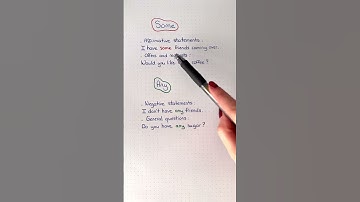 Some
. Affirmative statements.
I have some friends coming over.
. Offers and
Would you like coffee?
Any
. Negative statements.
I don't have any friends.
. General questions.
Do you have any sugar?